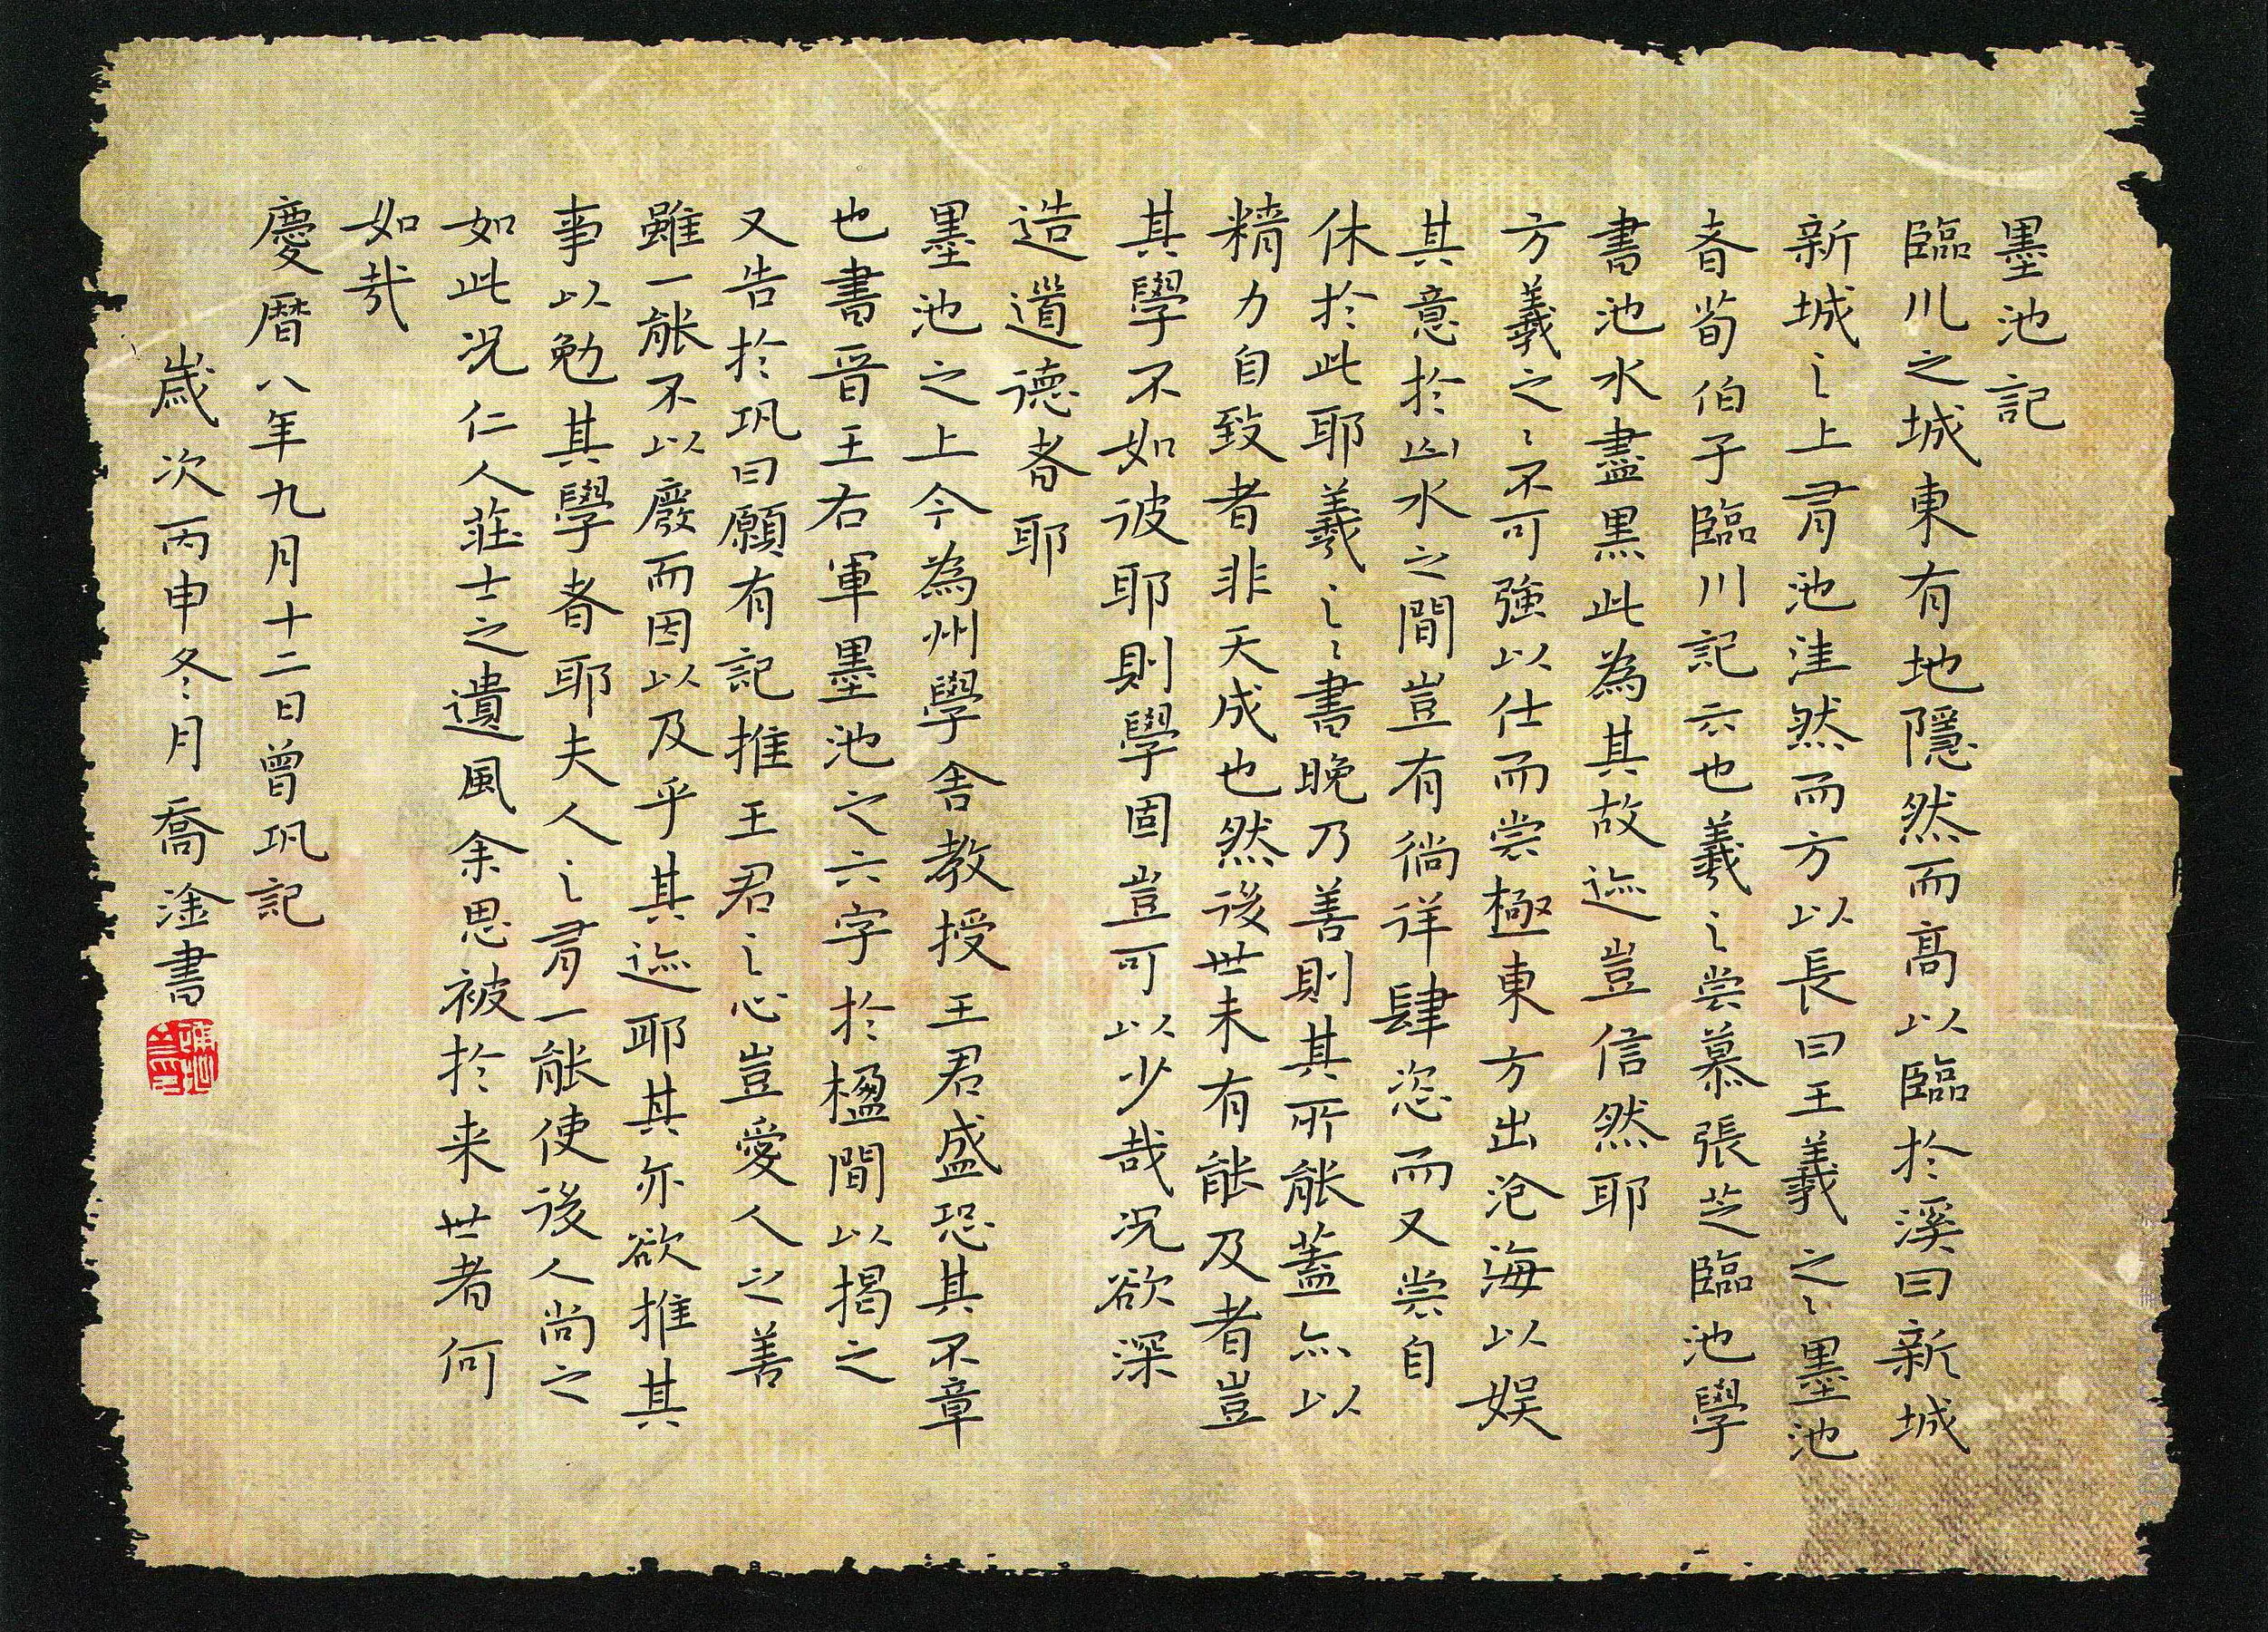 墨池記
臨川之城東有地隱然而高以臨於溪曰新城
新城之上有池洼然而方以長曰王羲之之墨池
者荀伯子臨川記云也羲之嘗慕張芝臨池學
書池水盡黑此為其故迹豈信然耶
方羲之之不可強以仕而嘗極東方出滄海以娛
其意於山水之間豈有徜徉肆恣而又嘗自
休於此耶羲之之書晚乃善則其所能蓋亦以
精力自致者非天成也然後世未有能及者豈
其學不如彼耶則學固豈可以少哉況欲深
造道德者耶
墨池之上今為州學舍教授王君盛恐其不章
也書晉王右軍墨池之六字於楹間以揭之
又告於巩曰願有記推王君之心豈愛人之善
雖一能不以廢而因以及乎其迹耶其亦欲推其
事以勉其學者耶夫人之有一能使後人尚之
如此況仁人莊士之遺風余思被於来世者何
如哉
慶曆八年九月十二日曾巩記
歲次丙申冬月喬淦書